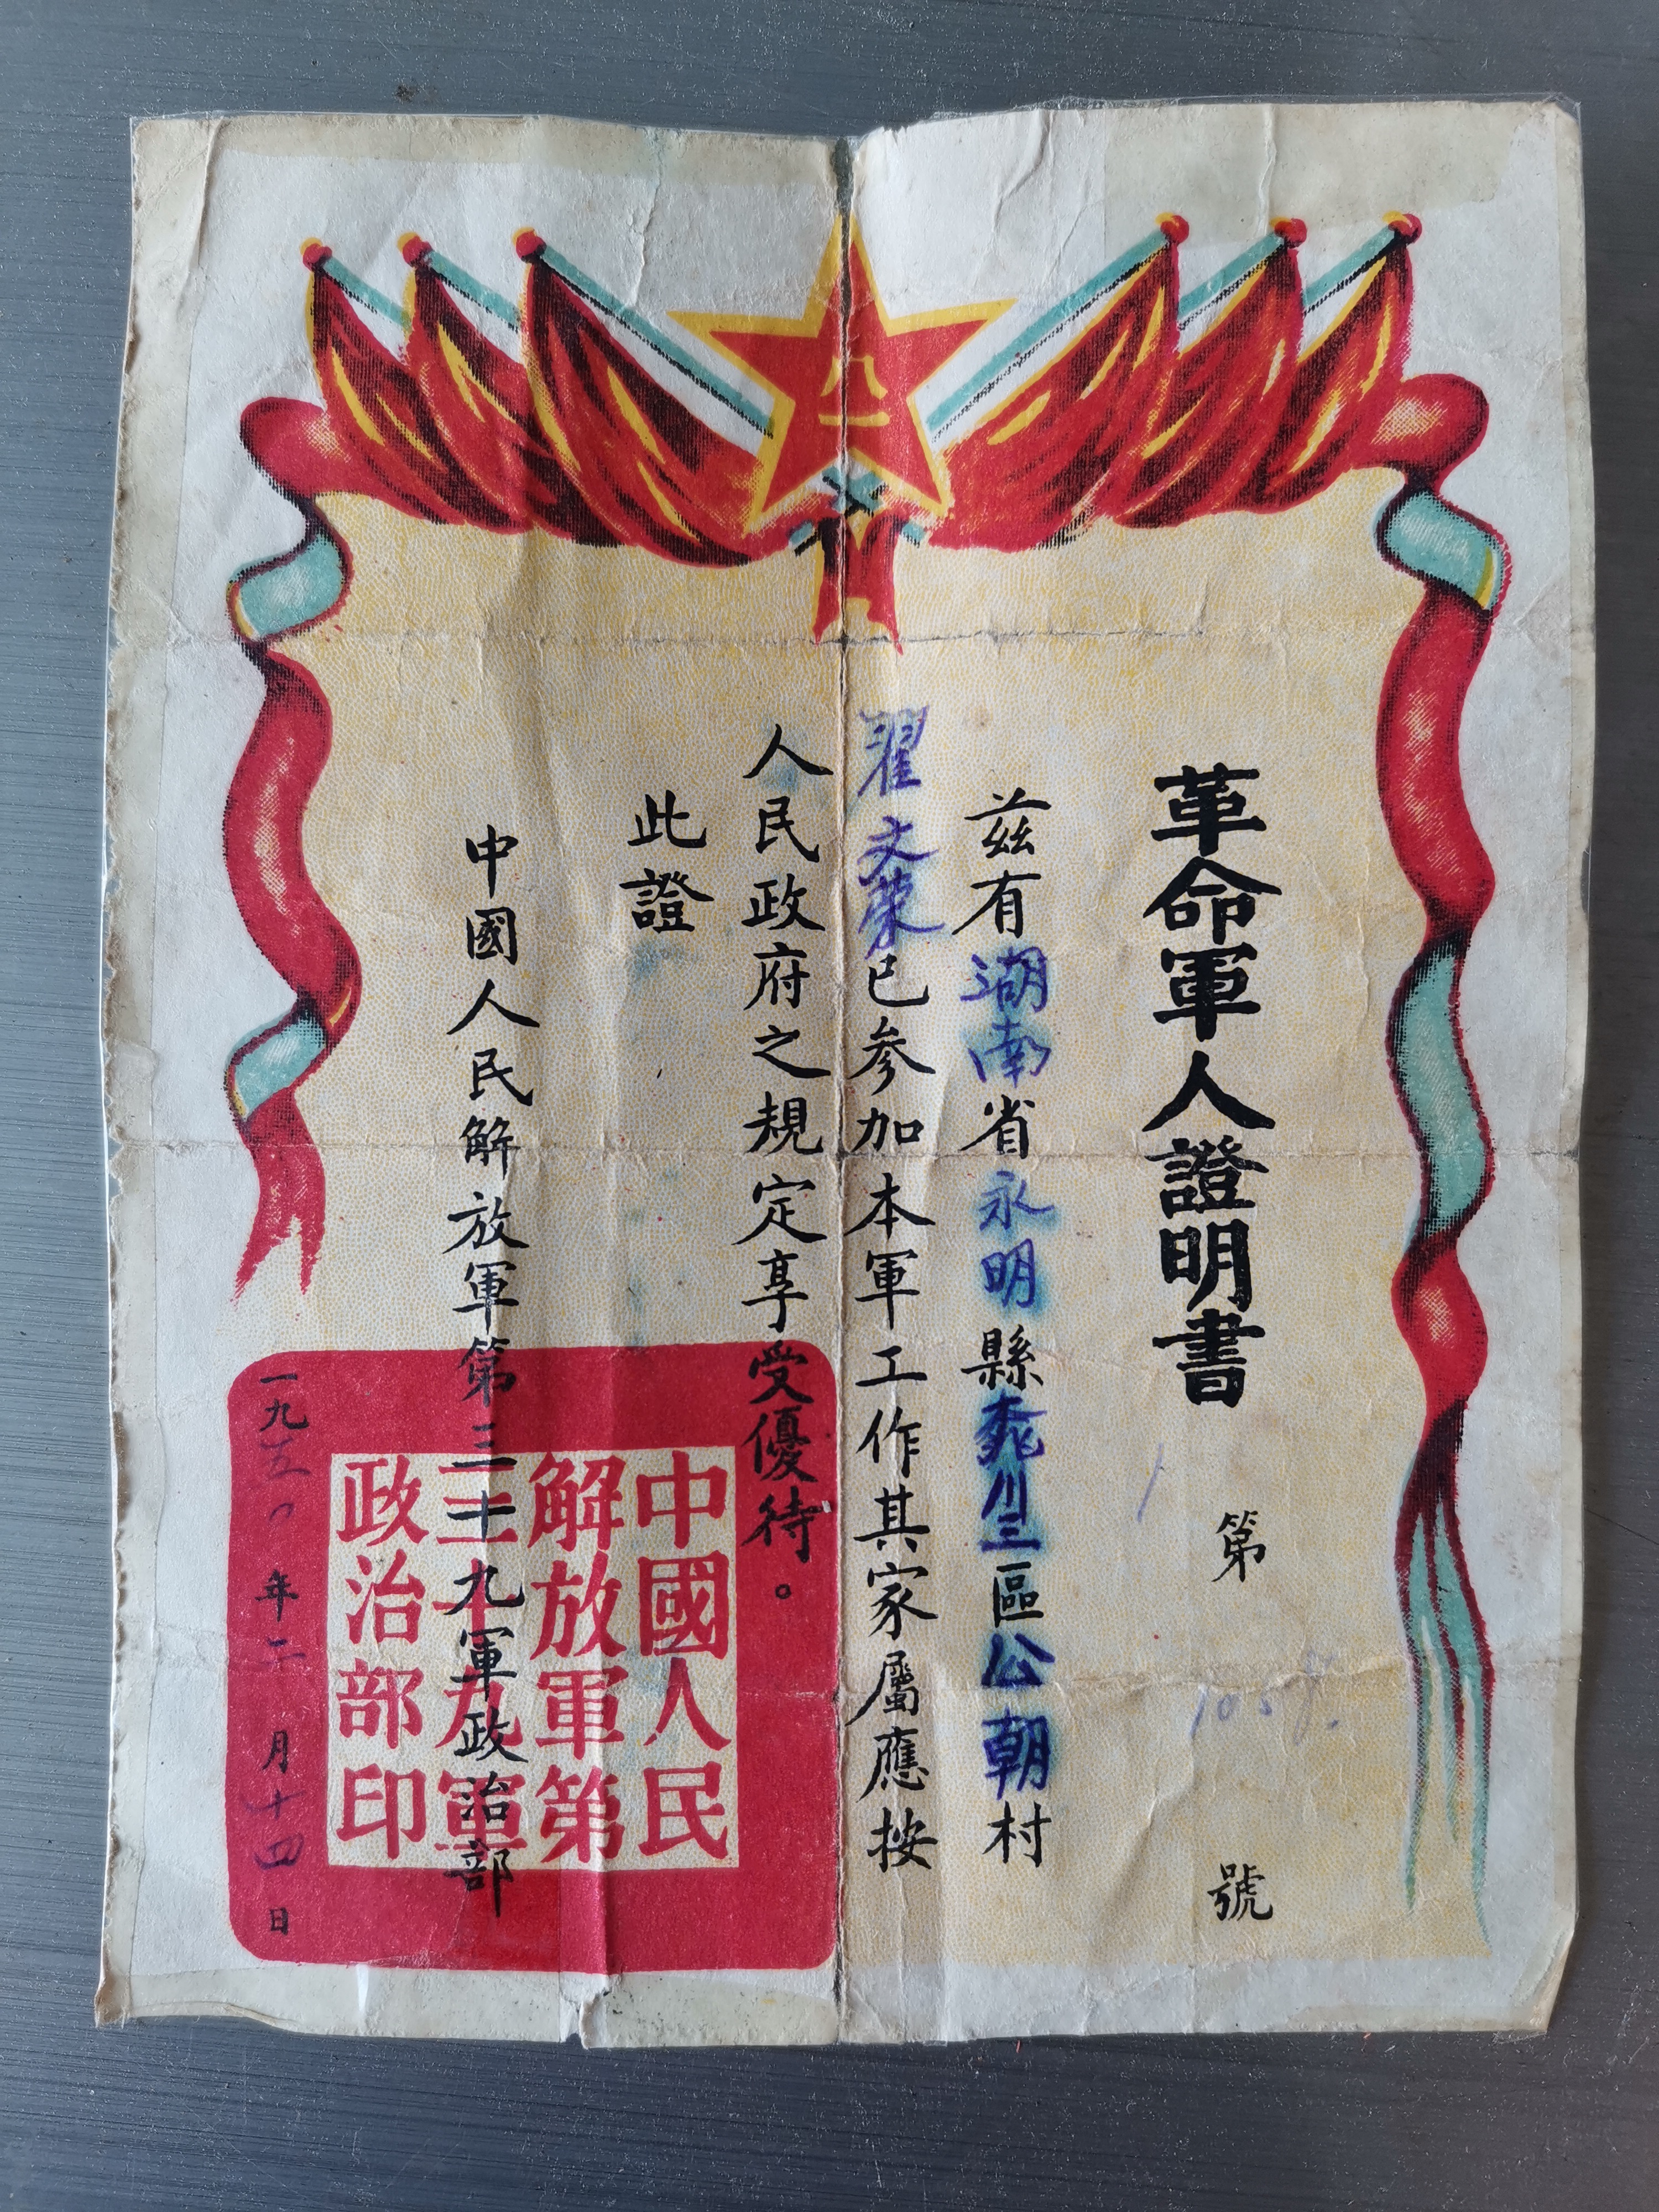 八一
革命軍人證明書
第 1058. 號
兹有湖南省永明縣桃川三區公朝村
翟文荣已参加本軍工作其家屬應按
人民政府之規定享受優待。
此證
中國人民解放軍第三十九軍政治部
一九五〇年二月十四日
中國人民
解放軍第
三十九軍
政治部印